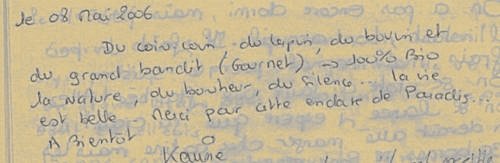 le 08 Mai 2006
Du coin, coin.. du lapin, du bouvin et
du grand bandit (Gournet) → 100% Bio
la nature, du bonheur, du silence... la vie
est belle - Merci pour cette enclave de Paradis...
A Bientôt